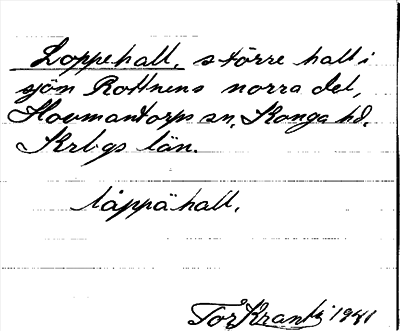 Loppehall, större hall i
sjön Rottnens norra del,
Hovmantorps sn, Konga hd.
Krbgs län.
låppähall.
Tor Krantz 1941